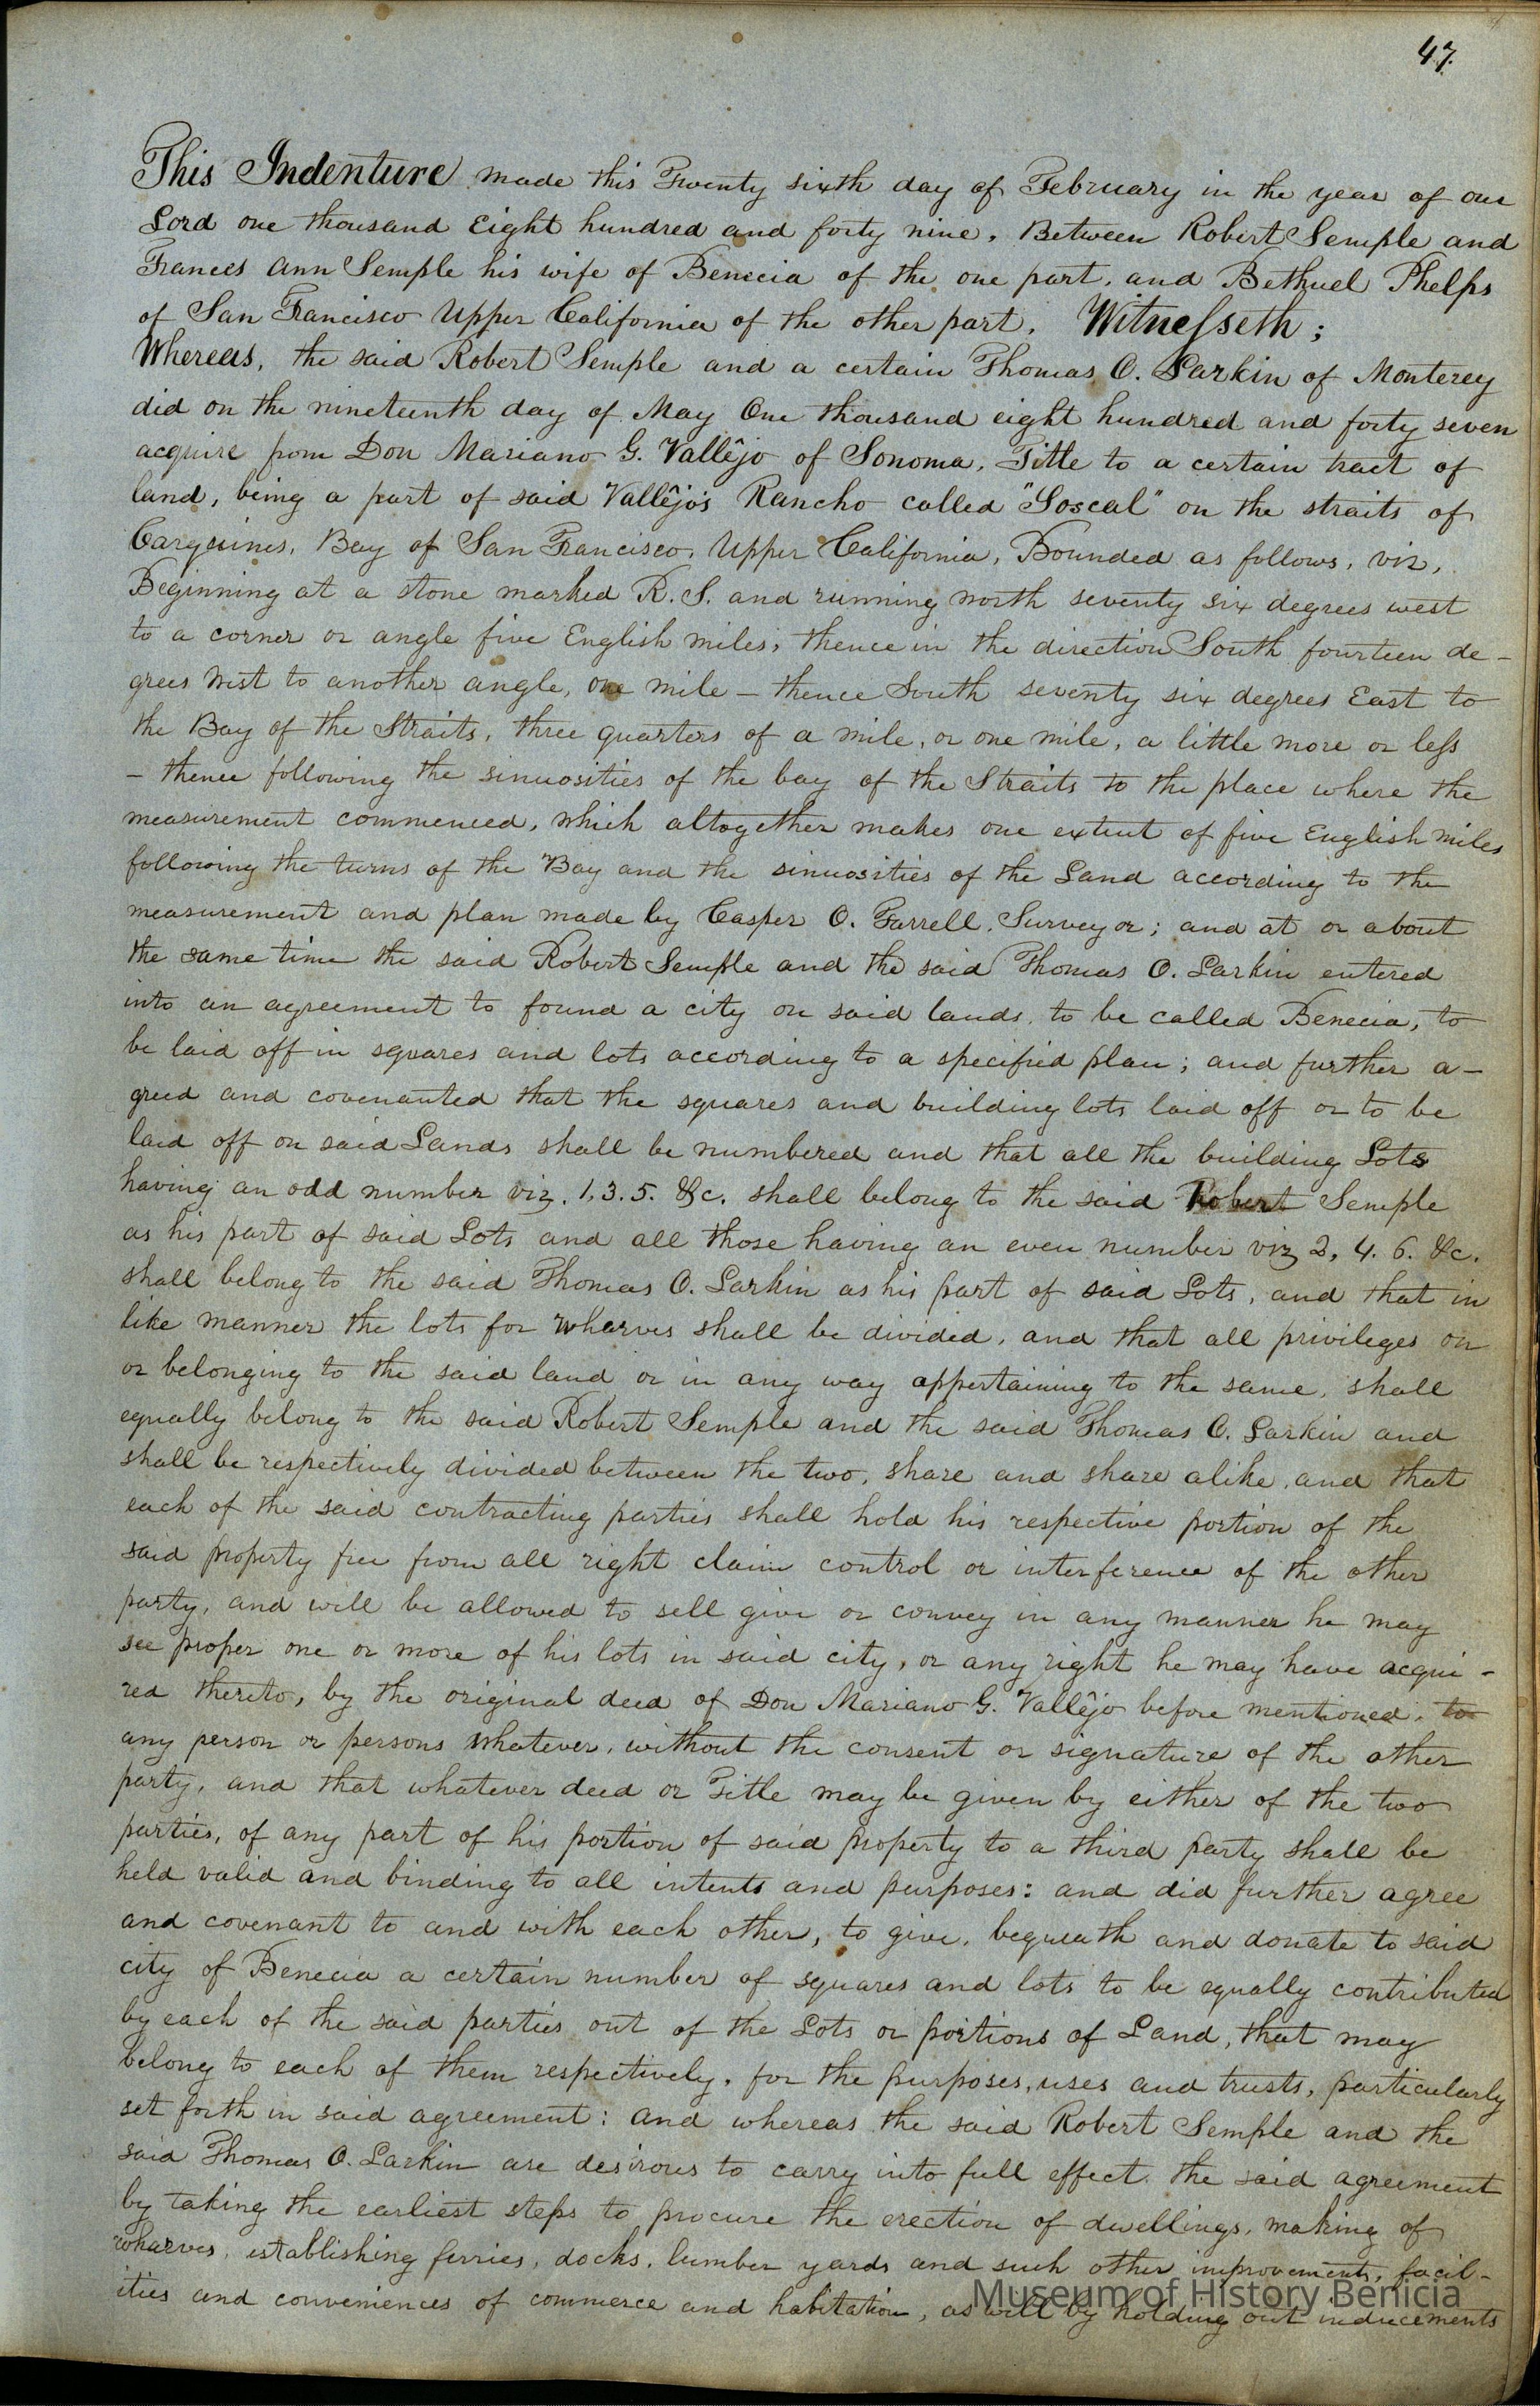 47.
This Indenture made this Twenty sixth day of February in the year of our
Lord one thousand Eight hundred and forty nine, Between Robert Semple and
Frances Ann Semple his wife of Benecia of the one part, and Bethuel Phelps
of San Francisco Upper California of the other part, Witnesseth;
Whereas, the said Robert Semple and a certain Thomas O. Larkin of Monterey
did on the nineteenth day of May One thousand eight hundred and forty seven
acquire from Don Mariano G. Vallêjo of Sonoma, Title to a certain tract of
land, being a part of said Vallêjo's Rancho called "Soscal" on the straits of
Carquines, Bay of San Francisco, Upper California, Bounded as follows, viz,
Beginning at a stone marked R. S. and running north seventy six degrees west
to a corner or angle five English miles, thence in the direction South fourteen de-
grees West to another angle, one mile - thence South seventy six degrees East to
the Bay of the Straits, three quarters of a mile, or one mile, a little more or less
- thence following the sinuosities of the bay of the Straits to the place where the
measurement commenced, which altogether makes one extent of five English miles
following the turns of the Bay and the sinuosities of the Land according to the
measurement and plan made by Casper O. Farrell, Surveyor; and at or about
the same time the said Robert Semple and the said Thomas O. Larkin entered
into an agreement to found a city on said lands, to be called Benecia, to
be laid off in squares and lots according to a specified plan; and further a-
greed and covenanted that the squares and building lots laid off or to be
laid off on said Lands shall be numbered and that all the building Lots
having an odd number viz. 1, 3. 5. &c. shall belong to the said Robert Semple
as his part of said Lots and all those having an even number viz 2, 4. 6. &c.
shall belong to the said Thomas O. Larkin as his part of said Lots, and that in
like manner the lots for Wharves shall be divided, and that all privileges on
or belonging to the said land or in any way appertaining to the same, shall
equally belong to the said Robert Semple and the said Thomas O. Larkin and
shall be respectively divided between the two, share and share alike, and that
each of the said contracting parties shall hold his respective portion of the
said property free from all right claim control or interference of the other
party, and will be allowed to sell give or convey in any manner he may
see proper one or more of his lots in said city, or any right he may have acqui-
red thereto, by the original deed of Don Mariano G. Vallêjo before mentioned, to
any person or persons whatever, without the consent or signature of the other
party, and that whatever deed or Title may be given by either of the two
parties, of any part of his portion of said property to a third party shall be
held valid and binding to all intents and purposes: and did further agree
and covenant to and with each other, to give, bequeath and donate to said
city of Benecia a certain number of squares and lots to be equally contributed
by each of the said parties out of the Lots or portions of Land, that may
belong to each of them respectively, for the purposes, uses and trusts, particularly
set forth in said agreement: and whereas the said Robert Semple and the
said Thomas O. Larkin are desirous to carry into full effect the said agreement
by taking the earliest steps to procure the erection of dwellings, making of
wharves, establishing ferries, docks, lumber yards and such other improvements, facil-
ities and conveniences of commerce and habitation, as well by holding out inducements
Museum of History Benicia